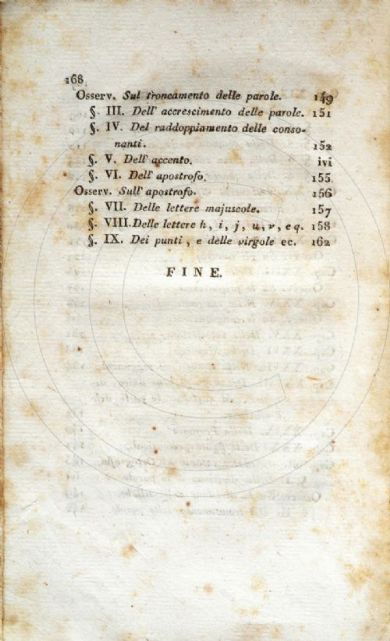 168
Osserv. Sul troncamento delle parole. 149
§. III. Dell' accrescimento delle parole. 151
§. IV. Del raddoppiamento delle conso-
nanti. 152
§. V. Dell' accento. ivi
§. VI. Dell' apostrofo. 155
Osserv. Sull' apostrofo. 156
§. VII. Delle lettere majuscole. 157
§. VIII. Delle lettere h, i, j, u, v, e q. 158
§. IX. Dei punti, e delle virgole ec. 162
FINE.